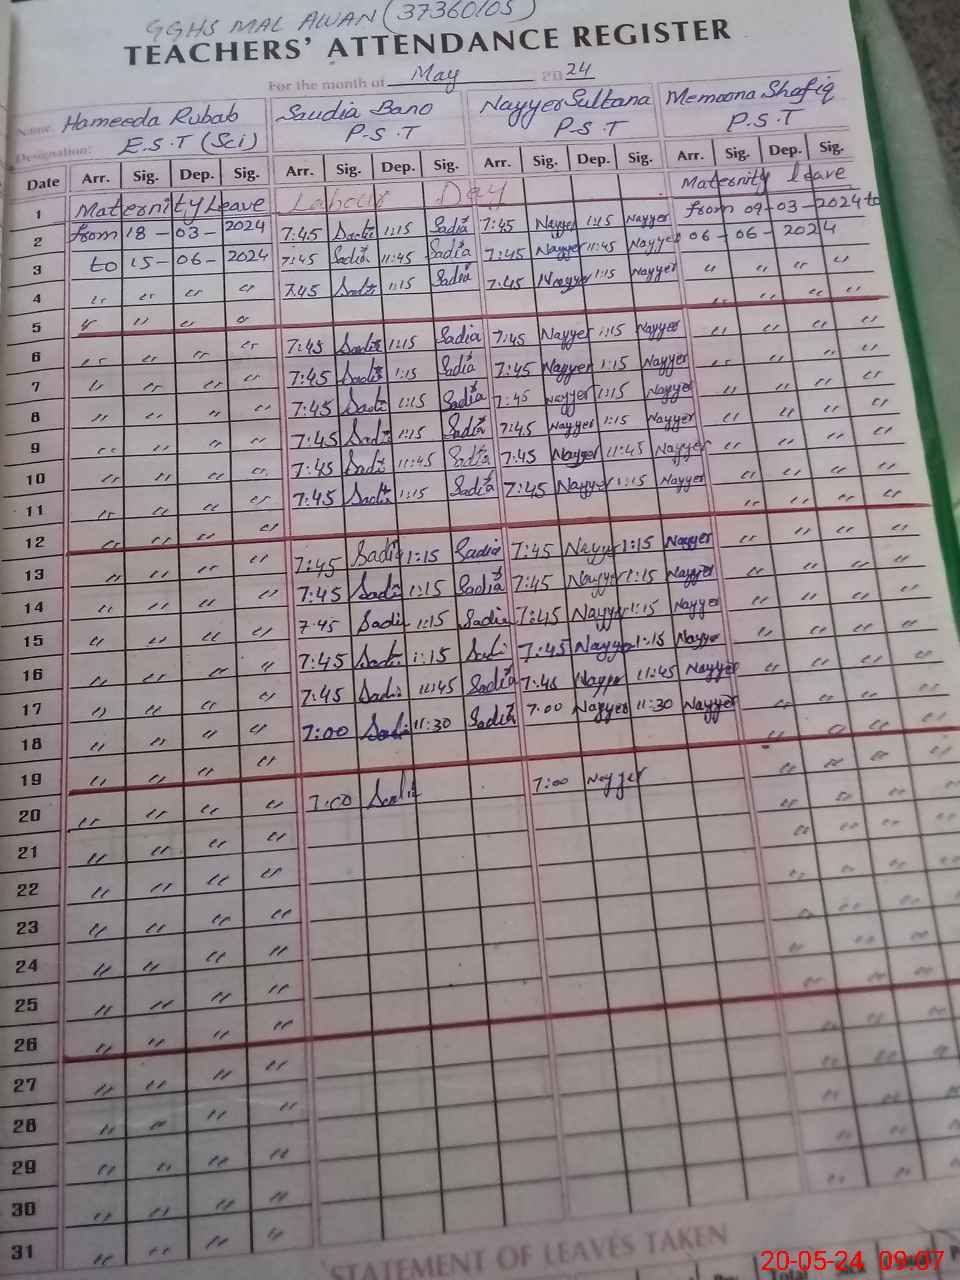 GGHS MAL AWAN (37360105)
TEACHERS' ATTENDANCE REGISTER
For the month of May 2024
Name: Hameeda Rubab Saudia Bano Nayyer Sultana Memoona Shafiq
Designation: E.S.T (Sci) P.S.T P.S.T P.S.T
Date Arr. Sig. Dep. Sig. Arr. Sig. Dep. Sig. Arr. Sig. Dep. Sig. Arr. Sig. Dep. Sig.
1 Maternity Leave Labour Day Maternity leave
2 from 18-03-2024 7:45 Sadia 1:15 Sadia 7:45 Nayyer 1:15 Nayyer from 09-03-2024 to
3 to 15-06-2024 7:45 Sadia 11:45 Sadia 7:45 Nayyer 11:45 Nayyer 06-06-2024
4 " " " " 7:45 Sadia 1:15 Sadia 7:45 Nayyer 1:15 Nayyer " " " "
5 " " " " " " " "
6 " " " " 7:45 Sadia 1:15 Sadia 7:45 Nayyer 1:15 Nayyer " " " "
7 " " " " 7:45 Sadia 1:15 Sadia 7:45 Nayyer 1:15 Nayyer " " " "
8 " " " " 7:45 Sadia 1:15 Sadia 7:45 Nayyer 1:15 Nayyer " " " "
9 " " " " 7:45 Sadia 1:15 Sadia 7:45 Nayyer 1:15 Nayyer " " " "
10 " " " " 7:45 Sadia 11:45 Sadia 7:45 Nayyer 11:45 Nayyer " " " "
11 " " " " 7:45 Sadia 1:15 Sadia 7:45 Nayyer 1:15 Nayyer " " " "
12 " " " " " " " "
13 " " " " 7:45 Sadia 1:15 Sadia 7:45 Nayyer 1:15 Nayyer " " " "
14 " " " " 7:45 Sadia 1:15 Sadia 7:45 Nayyer 1:15 Nayyer " " " "
15 " " " " 7:45 Sadia 1:15 Sadia 7:45 Nayyer 1:15 Nayyer " " " "
16 " " " " 7:45 Sadia 1:15 Sadia 7:45 Nayyer 1:15 Nayyer " " " "
17 " " " " 7:45 Sadia 11:45 Sadia 7:45 Nayyer 11:45 Nayyer " " " "
18 " " " " 7:00 Sadia 11:30 Sadia 7:00 Nayyer 11:30 Nayyer " " " "
19 " " " " " " " "
20 " " " " 7:00 Sadia 7:00 Nayyer " " " "
21 " " " " " " " "
22 " " " " " " " "
23 " " " " " " " "
24 " " " " " " " "
25 " " " " " " " "
26 " " " " " " " "
27 " " " " " " " "
28 " " " " " " " "
29 " " " " " " " "
30 " " " " " " "
31 " " " "
STATEMENT OF LEAVES TAKEN
20-05-24 09:07